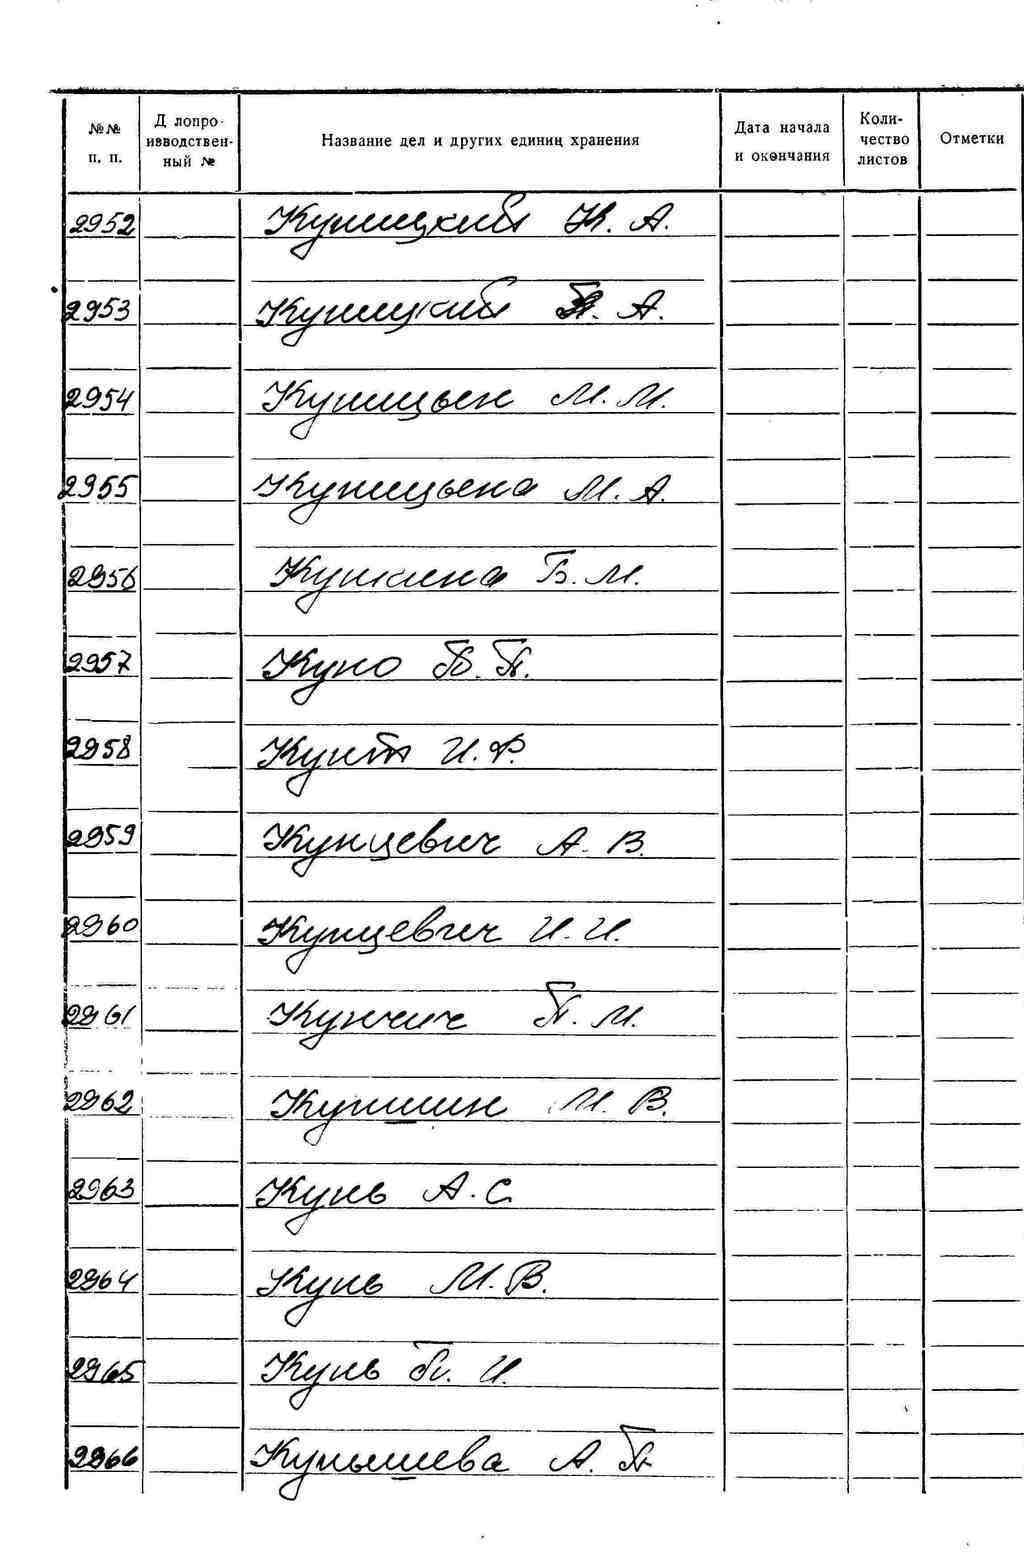 №№ п. п.
Д лопроизводственный №
Название дел и других единиц хранения
Дата начала и окончания
Количество листов
Отметки
2952 Куницкий К. А.
2953 Куницкий П. А.
2954 Куницын М. М.
2955 Куницына М. А.
2956 Кункина Б. М.
2957 Куно
2958 Кунт И. Ф.
2959 Кунцевич А. В.
2960 Кунцевич И. И.
2961 Кунчич П. М.
2962 Куншин М. В.
2963 Кунь А. С.
2964 Кунь М. В.
2965 Кунь И.
2966 Кунышева А. П.